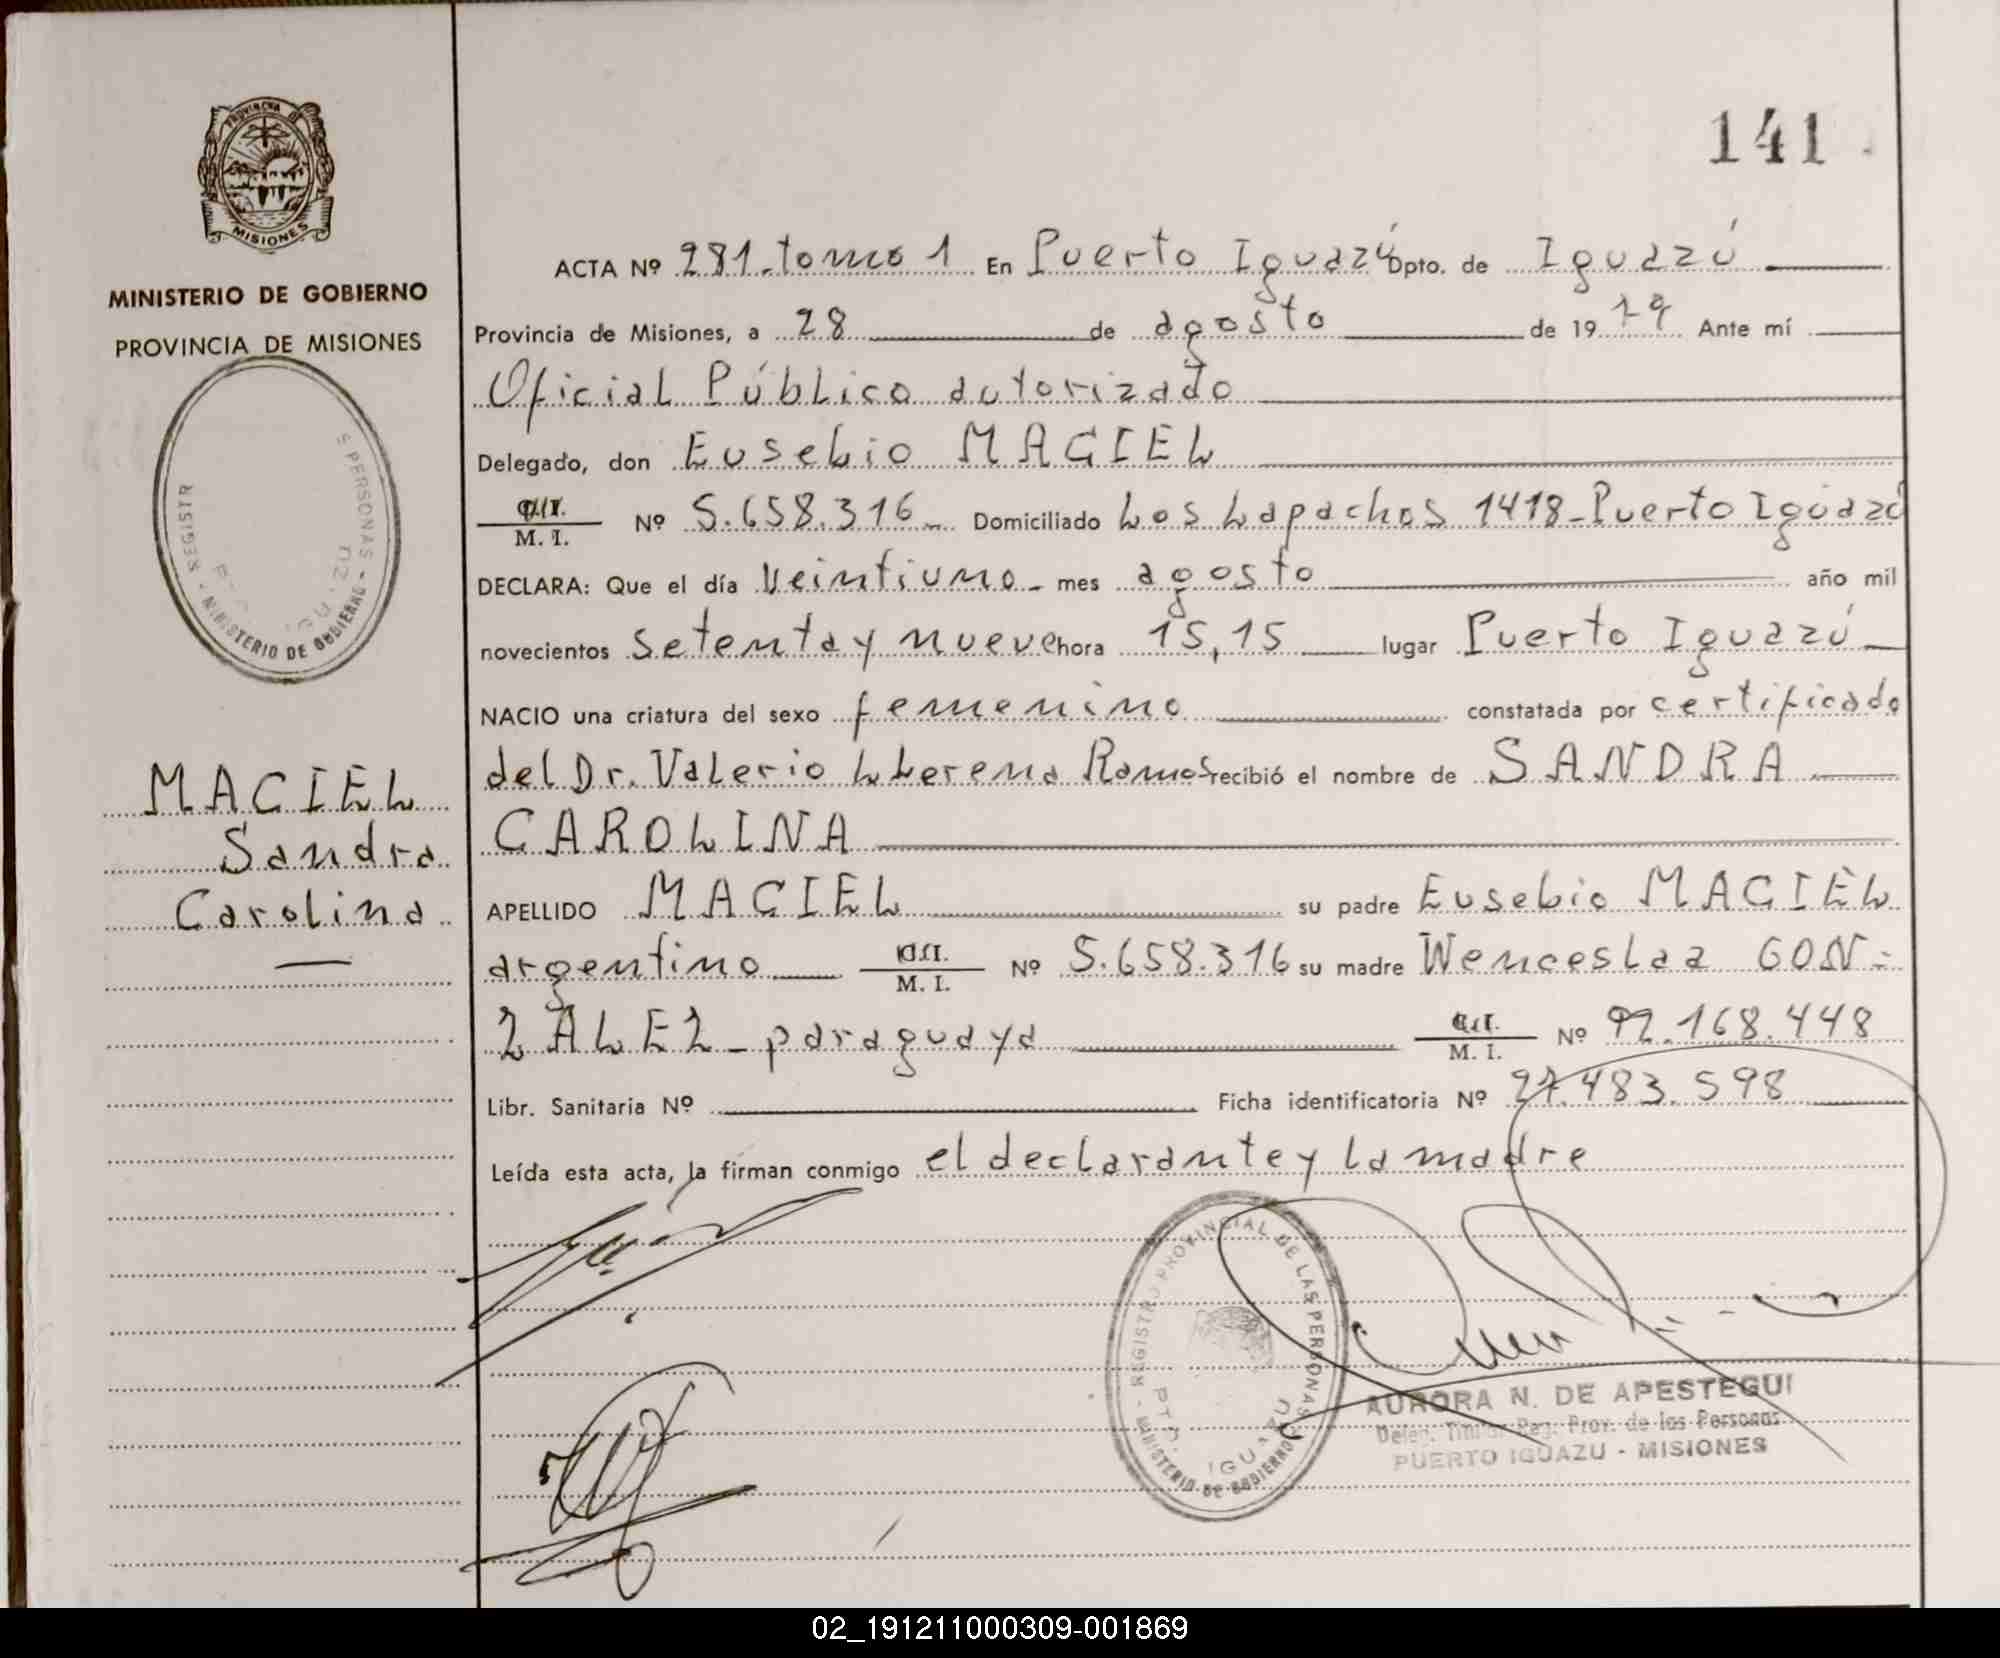 PROVINCIA DE
MISIONES
MINISTERIO DE GOBIERNO
PROVINCIA DE MISIONES
REGISTR S PERSONAS - MINISTERIO DE GOBIERNO -
MACIEL
Sandra
Carolina
141
ACTA Nº 281. tomo 1 En Puerto Iguazú Dpto. de Iguazú
Provincia de Misiones, a 28 de agosto de 1979 Ante mí
Oficial Público autorizado
Delegado, don Eusebio MACIEL
M. I. Nº 5.658.316 Domiciliado Los Lapachos 1418 - Puerto Iguazú
DECLARA: Que el día veintiuno - mes agosto año mil
novecientos setenta y nueve hora 15,15 lugar Puerto Iguazú
NACIO una criatura del sexo femenino constatada por certificado
del Dr. Valerio Llerena Ramos recibió el nombre de SANDRA
CAROLINA
APELLIDO MACIEL su padre Eusebio MACIEL
argentino M. I. Nº 5.658.316 su madre Wenceslaa GON-
ZALEZ - paraguaya M. I. Nº 92.168.448
Libr. Sanitaria Nº Ficha identificatoria Nº 27.483.598
Leída esta acta, la firman conmigo el declarante y la madre
REGISTRO PROVINCIAL DE LAS PERSONAS - MINISTERIO DE GOBIERNO -
PTO. IGUAZU
AURORA N. DE APESTEGUI
Deleg. Titular Reg. Prov. de las Personas
PUERTO IGUAZU - MISIONES
02_191211000309-001869